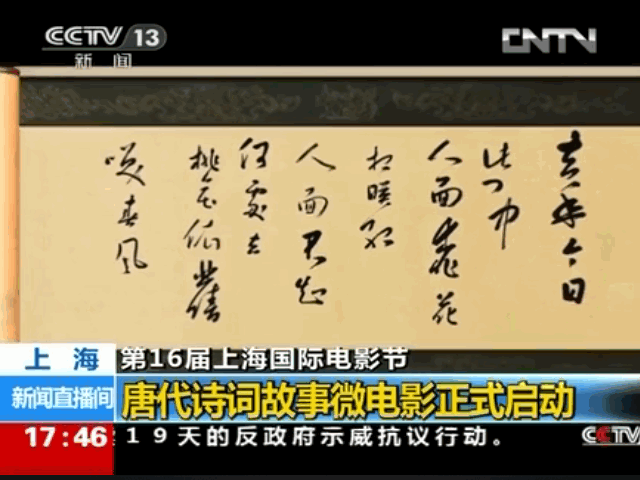 CCTV 13
新闻
CNTV
去年今日
此门中
人面桃花
相暎红
人面不知
何處去
桃花依舊
咲春风
上海
第16届上海国际电影节
新闻直播间
唐代诗词故事微电影正式启动
17:46
19天的反政府示威抗议行动。
CCTV